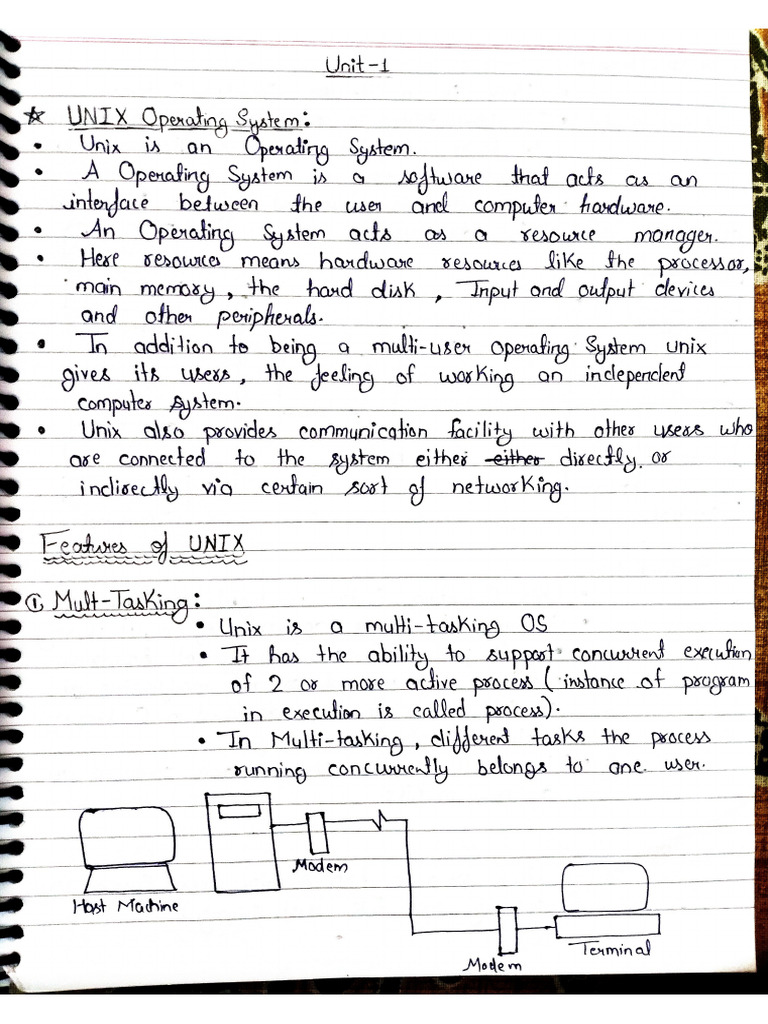 Unit-1
☆ UNIX Operating System:
• Unix is an Operating System.
• A Operating System is a software that acts as an
interface between the user and computer hardware.
• An Operating System acts as a resource manager.
• Here resources means hardware resources like the processor,
main memory, the hard disk, Input and output devices
and other peripherals.
• In addition to being a multi-user operating System unix
gives its users, the feeling of working an independent
computer system.
• Unix also provides communication facility with other users who
are connected to the system either either directly or
indirectly via certain sort of networking.
Features of UNIX
① Mult-Tasking:
• Unix is a multi-tasking OS
• It has the ability to support concurrent execution
of 2 or more active process (instance of program
in execution is called process).
• In Multi-tasking, different tasks the process
running concurrently belongs to one user.
Modem
Host Machine
Terminal
Modem